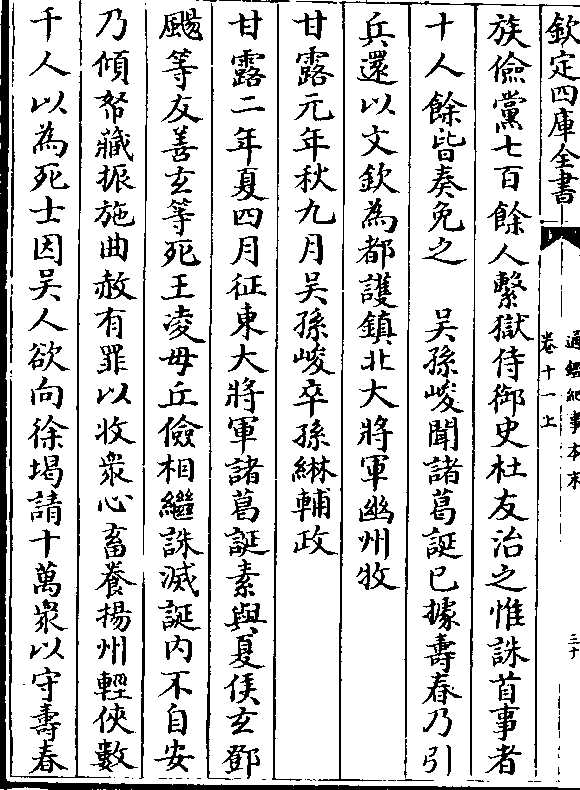 欽定四庫全書
通鑑紀事本末
卷十一上
三十
族儉黨七百餘人繫獄侍御史杜友治之惟誅首事者
十人餘皆奏免之　吳孫峻聞諸葛誕已據壽春乃引
兵還以文欽為都護鎮北大將軍幽州牧
甘露元年秋九月吳孫峻卒孫綝輔政
甘露二年夏四月征東大將軍諸葛誕素與夏侯玄鄧
颺等友善玄等死王凌毋丘儉相繼誅滅誕内不自安
乃傾帑藏振施曲赦有罪以收衆心畜養揚州輕俠數
千人以為死士因吳人欲向徐堨請十萬衆以守壽春